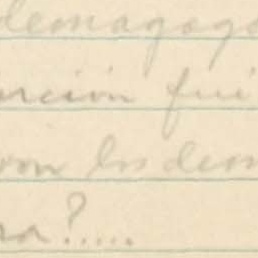 demagogo
rción fué
ron los dem
na?.....